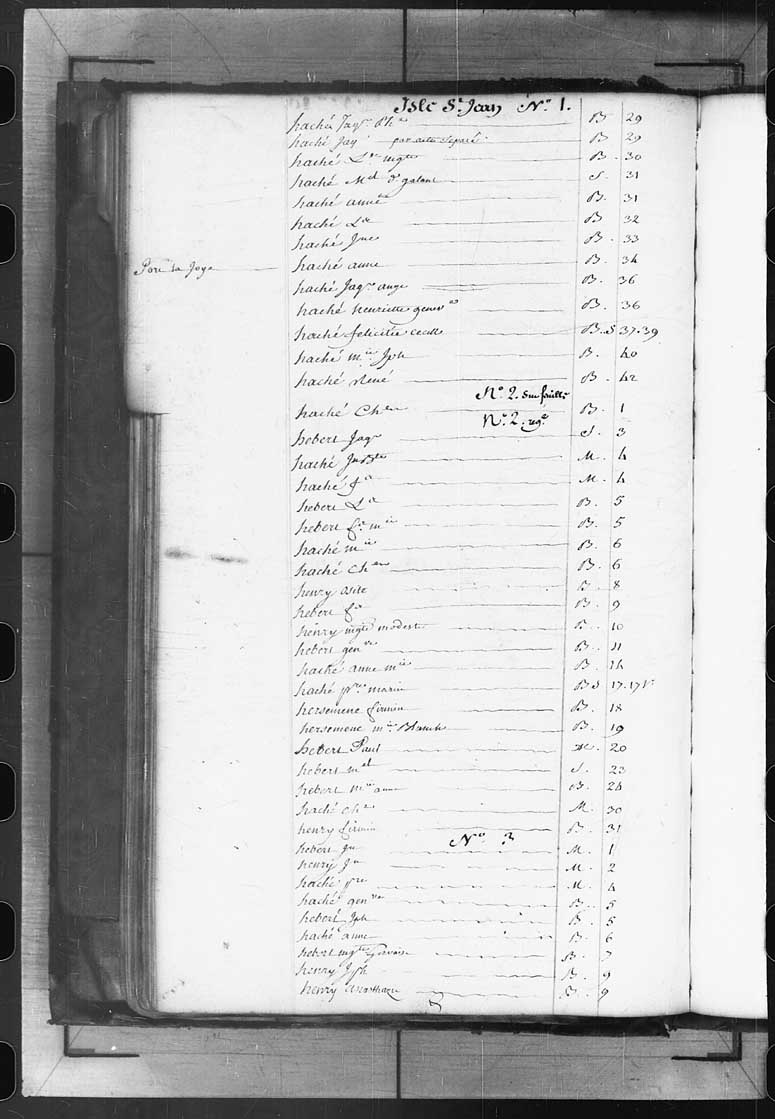 Isle St Jean No 1.
haché Jaqs B. 29
haché Jaq par acte separé B. 29
haché Lse mgte B. 30
haché Mel dt galant S. 31
haché anne B. 31
haché B 32
haché B. 33
Port la Joye haché anne B. 34
haché Jaqs ange B. 36
haché henriette genve B. 36
haché felicitée cecile B.S 37.39
haché mie Jph B. 40
haché René B. 42
No 2. feuille
haché Chles B. 1
No 2. regre
hebert Jaqs S. 3
haché JnBte M. 4
haché M. 4
hebert B. 5
hebert mie B. 5
haché mie B. 6
haché Chles B. 6
henry osite B. 8
hebert B. 9
henry mgte modeste B. 10
hebert genve B. 11
haché anne mie B. 14
haché pre marin B S 17.17 v.
hersemene firmin B. 18
hersemene mie Blanche B. 19
hebert Paul M. 20
hebert mel S. 23
hebert mie anne B. 24
haché Chs M. 30
henry firmin B. 31
No 3
hebert Jn M. 1
henry Jn M. 2
haché pre M. 4
haché genve B. 5
hebert Jph B. 5
haché anne B. 6
hebert mgte B. 7
henry Jph B. 9
henry B. 9